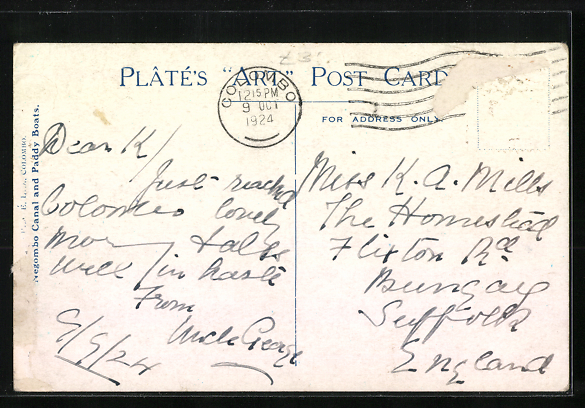 PLÂTÉ'S "ART" POST CARD
COLOMBO
12 15 PM
9 OCT
1924
FOR ADDRESS ONLY.
COLOMBO.
Negombo Canal and Paddy Boats.
Dear K/
Just reachd
Colombo lovely
all
well / in haste
From
Uncle George
9/9/24
Miss K. A. Mills
The Homestead
Flixton Rd
Bungay
Suffolk
England